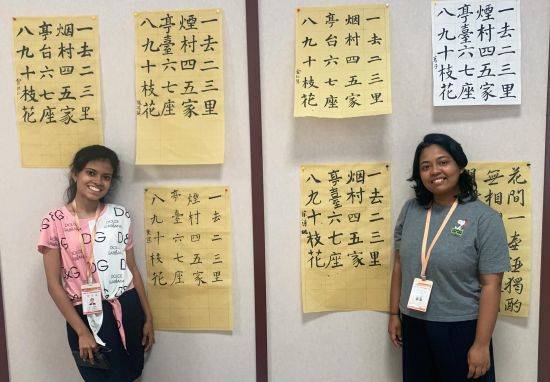 一去二三里
烟村四五家
亭台六七座
八九十枝花
一去二三里
煙村四五家
亭臺六七座
八九十枝花
一去二三里
煙村四五家
亭臺六七座
八九十枝花
一去二三里
烟村四五家
亭台六七座
八九十枝花
一去二三里
煙村四五家
亭臺六七座
八九十枝花
一去二三里
烟村四五家
亭臺六七座
八九十枝花
花間一壺酒獨酌
無相
D&G
DOLCE & GABBANA